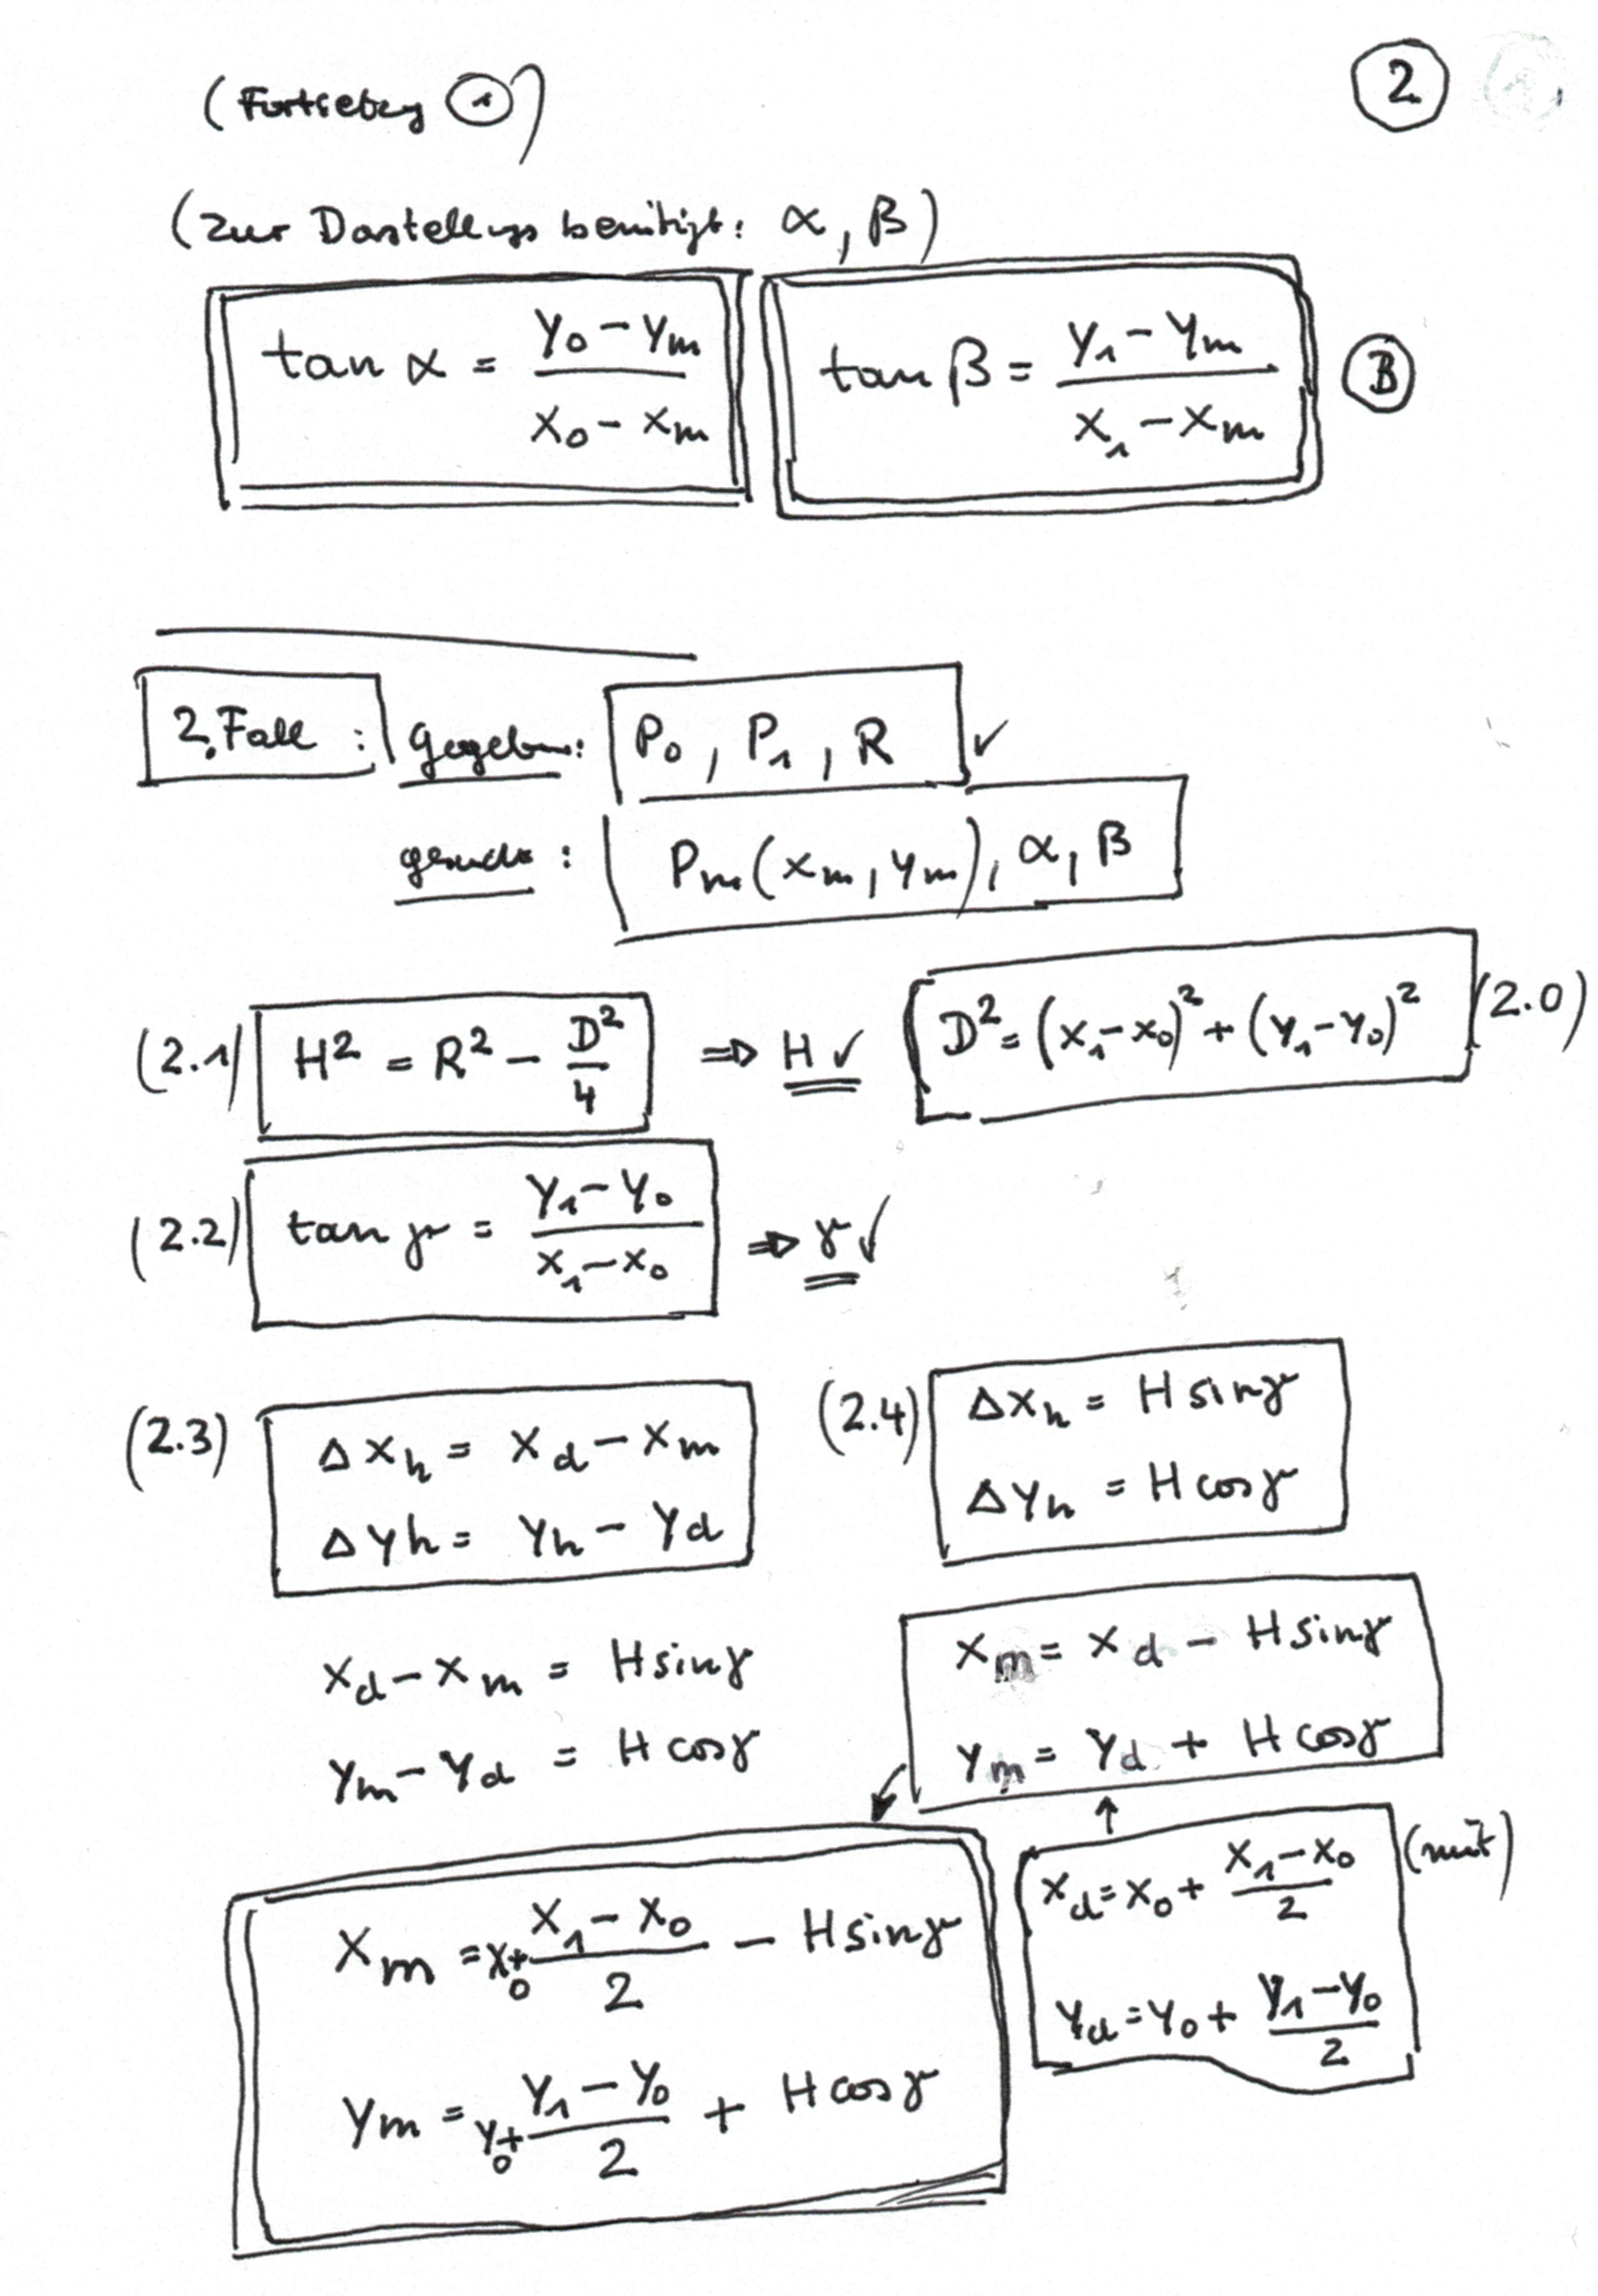 (Fortsetzung ①) ②
(Zur Darstellung benötigt: α, β)
tan α = (y₀ − yₘ) / (x₀ − xₘ)   tan β = (y₁ − yₘ) / (x₁ − xₘ)   Ⓑ
2. Fall : Gegeben: P₀, P₁, R ✓
gesucht : Pₘ(xₘ, yₘ), α, β
(2.1) H² = R² − D²/4 ⇒ H ✓   D² = (x₁−x₀)² + (y₁−y₀)² (2.0)
(2.2) tan γ = (y₁−y₀) / (x₁−x₀) ⇒ γ ✓
(2.3) Δxₕ = x_d − xₘ   (2.4) Δxₕ = H sinγ
Δyh = yₕ − y_d   Δyₕ = H cosγ
x_d − xₘ = H sinγ   xₘ = x_d − H sinγ
yₘ − y_d = H cosγ   yₘ = y_d + H cosγ
↙ ↑
xₘ = x₀ + (x₁ − x₀)/2 − H sinγ   x_d = x₀ + (x₁−x₀)/2 (mit)
yₘ = y₀ + (y₁ − y₀)/2 + H cosγ   y_d = y₀ + (y₁−y₀)/2